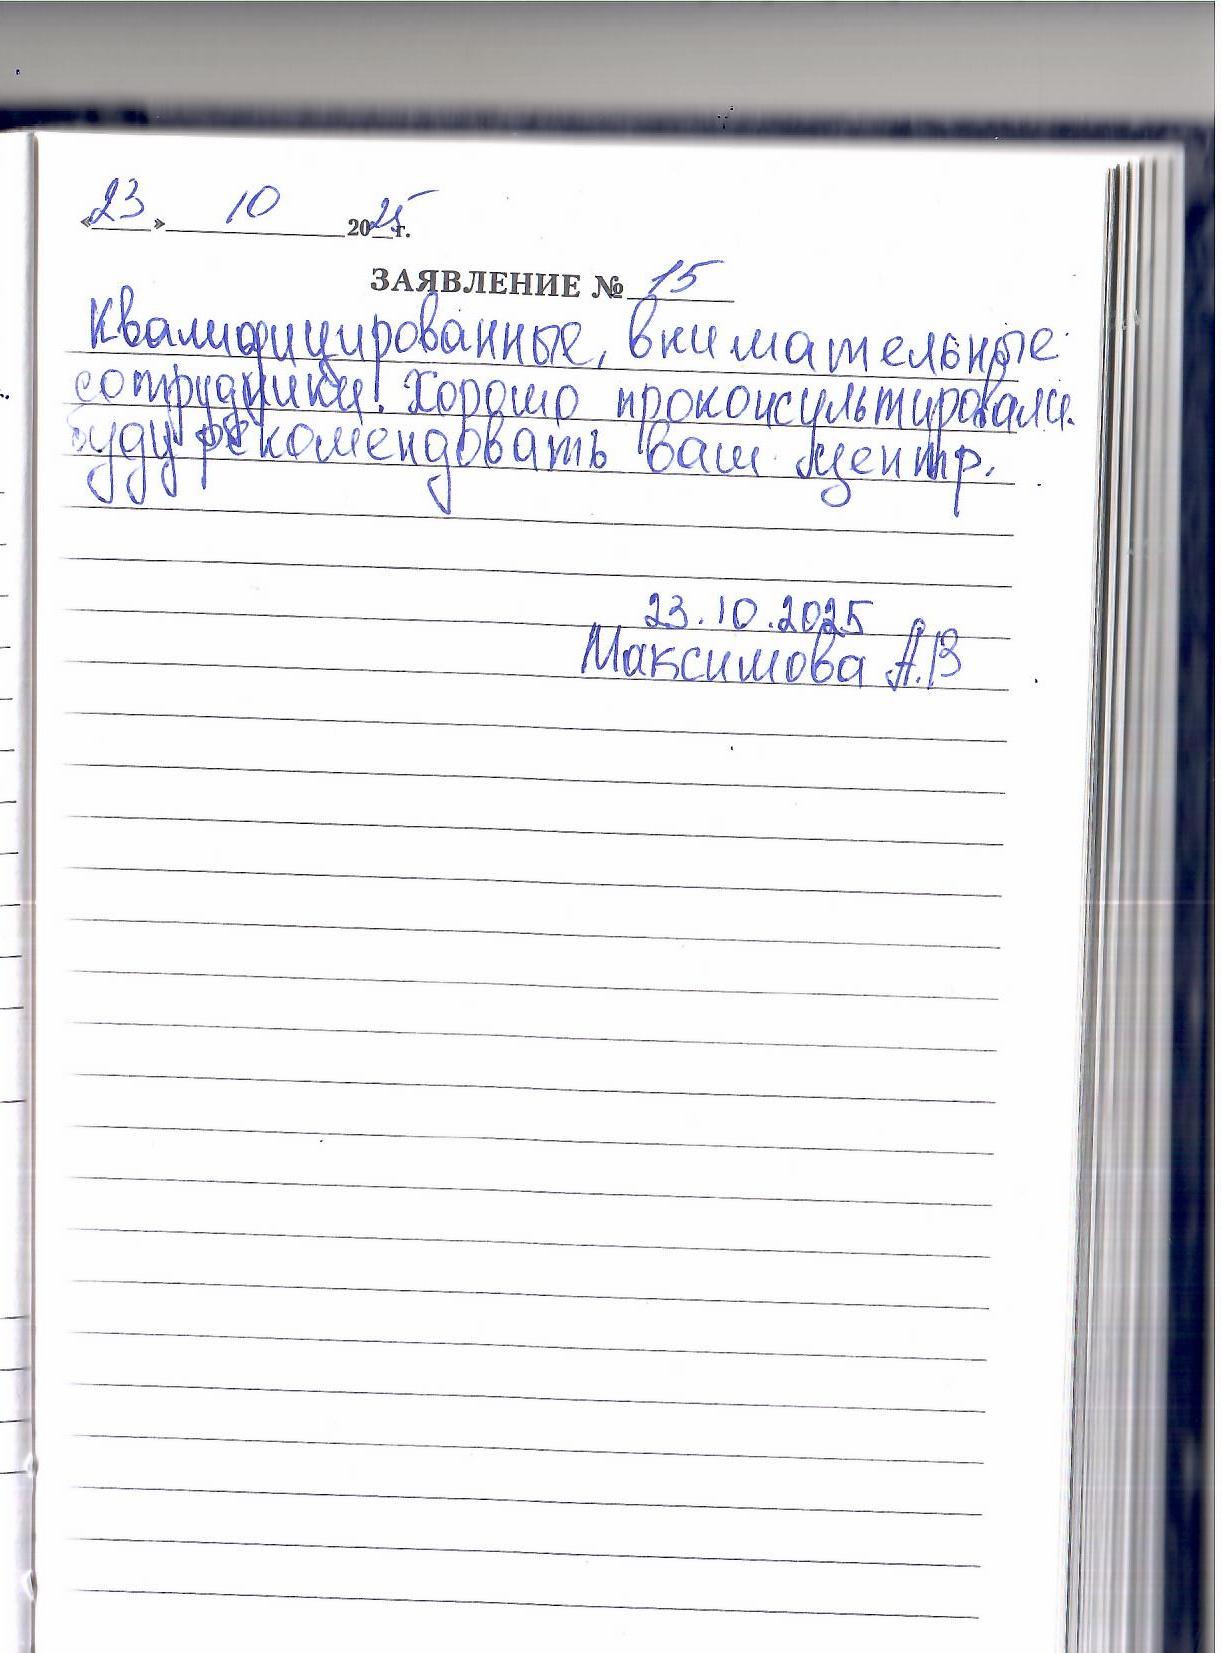 «23» 10 2025 г.
ЗАЯВЛЕНИЕ № 15
Квалифицированные, внимательные
сотрудники! Хорошо проконсультировали.
Буду рекомендовать ваш центр.
23.10.2025
Максимова А.В